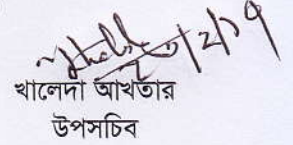 খালেদা আখতার
উপসচিব